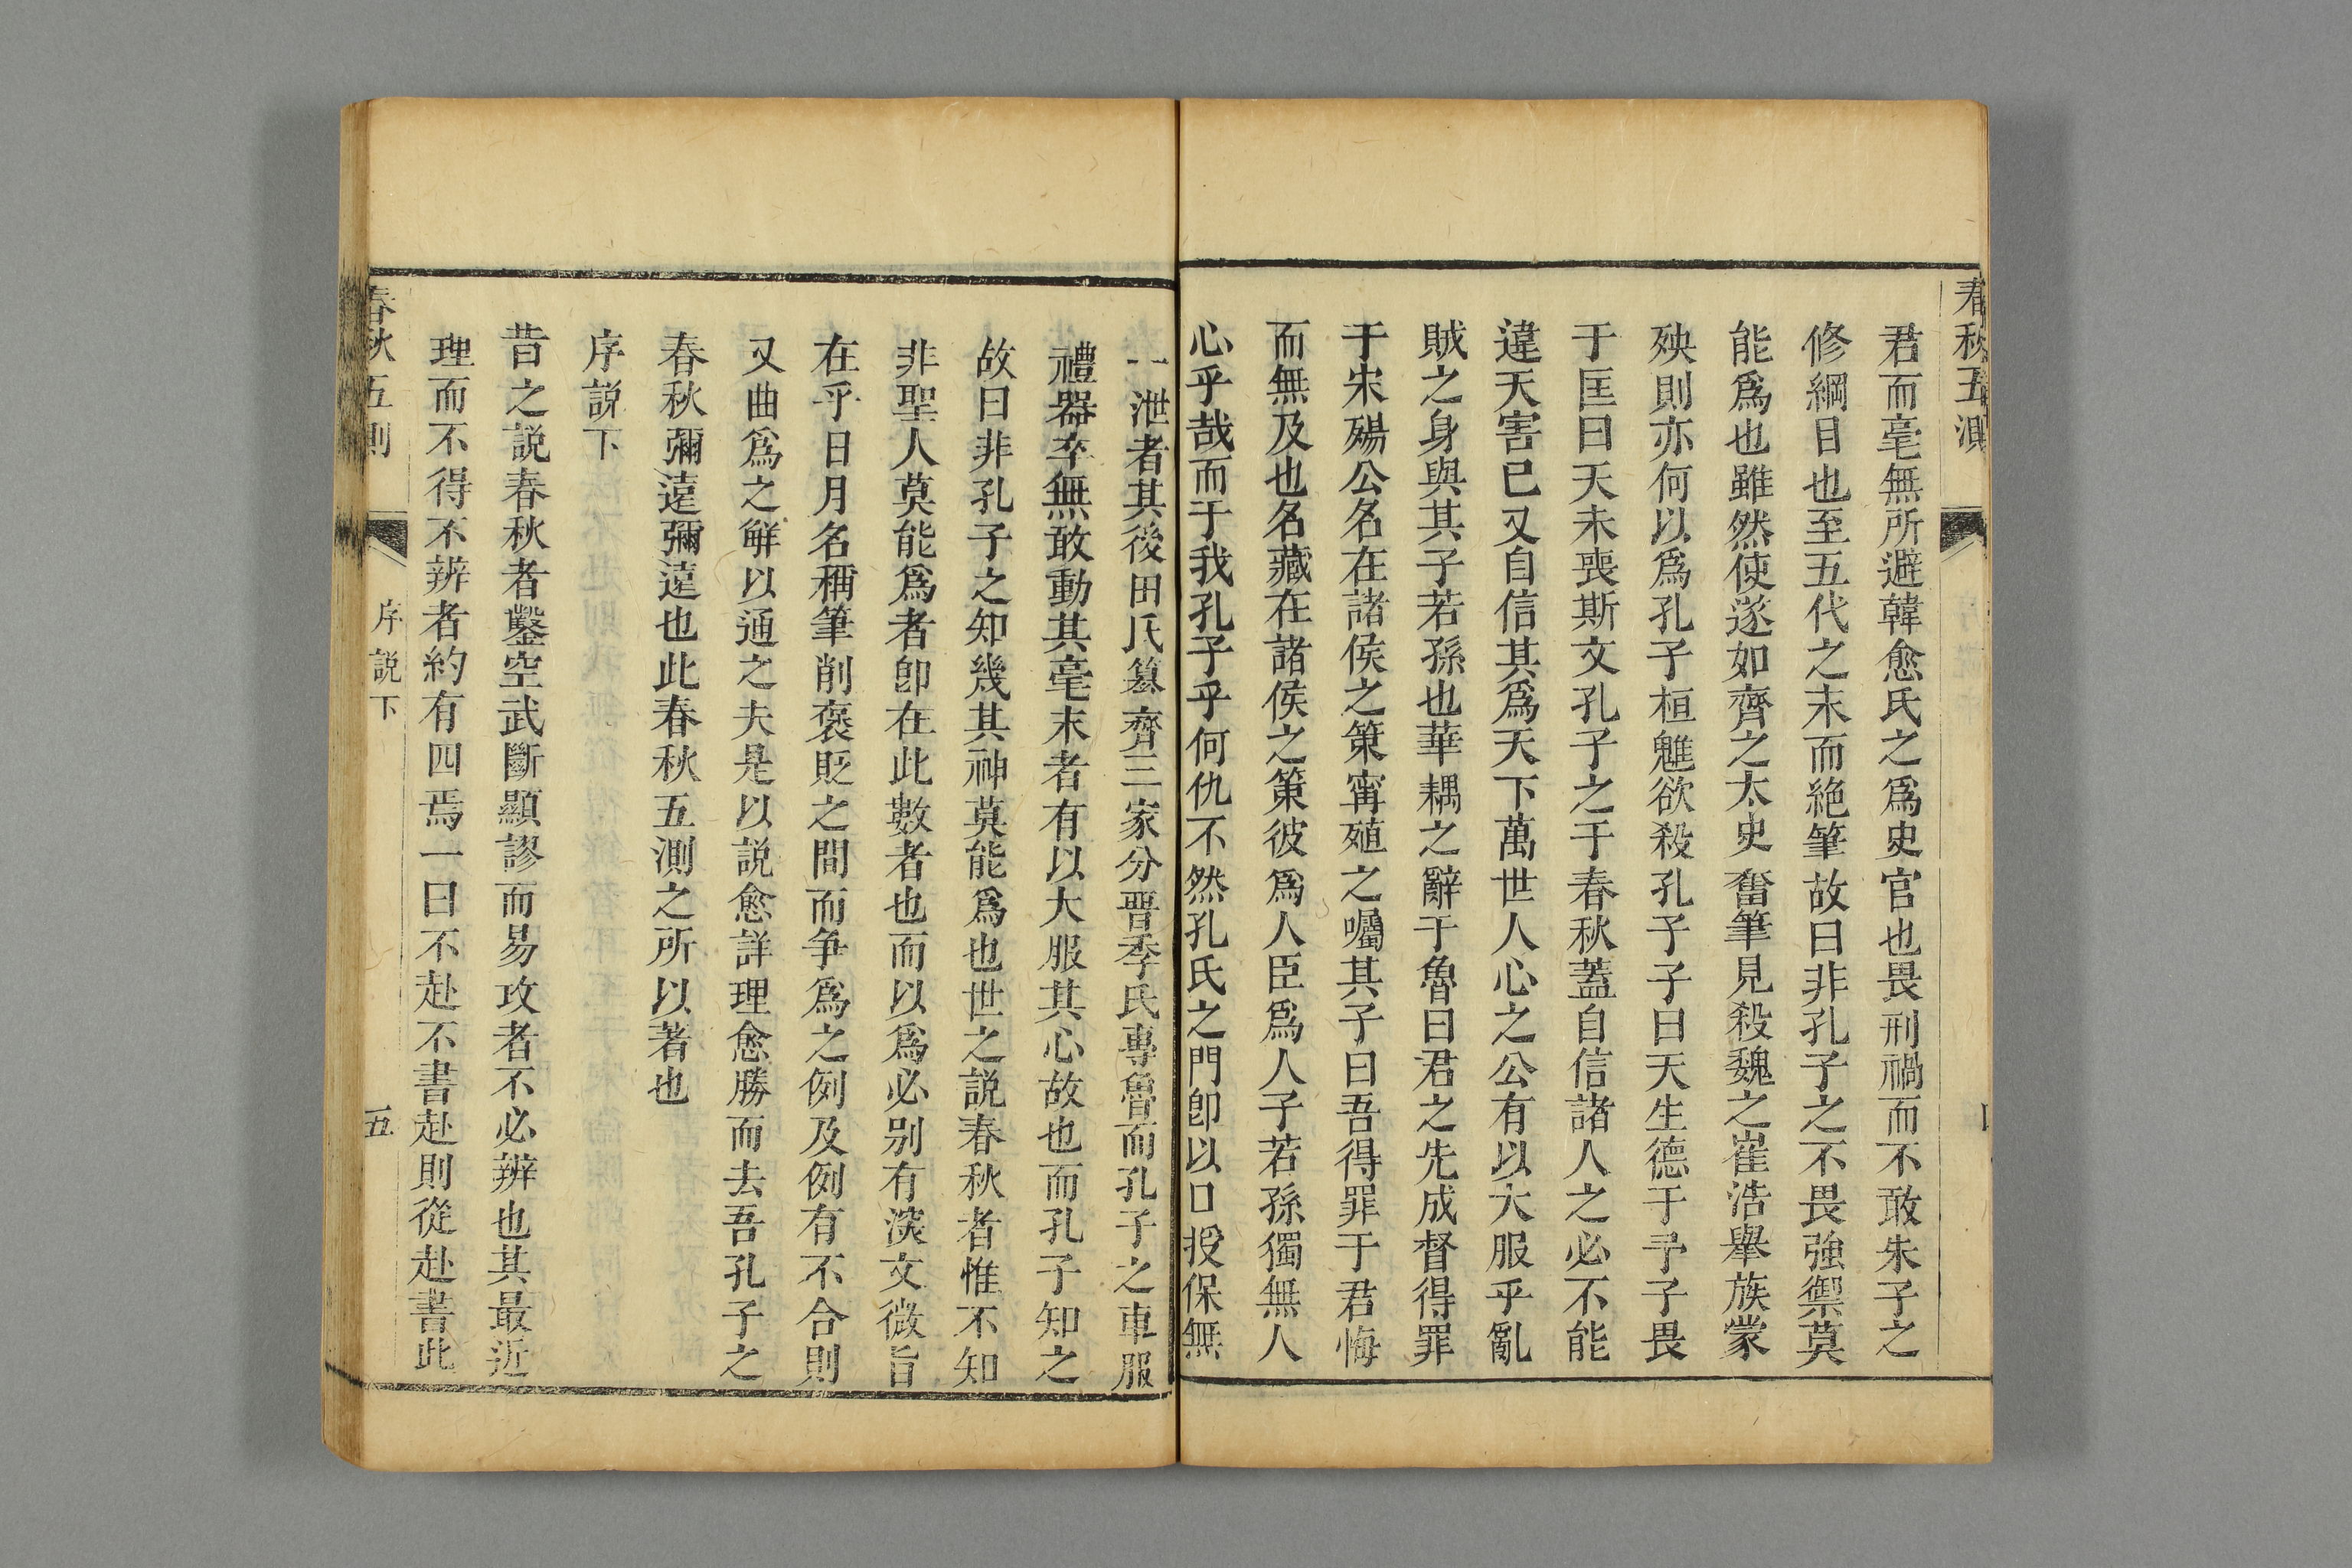 春秋五測
君而毫無所避韓愈氏之爲史官也畏刑禍而不敢朱子之
修綱目也至五代之末而絶筆故曰非孔子之不畏強禦莫
能爲也雖然使遂如齊之太史奮筆見殺魏之崔浩舉族蒙
殃則亦何以爲孔子桓魋欲殺孔子子曰天生德于予子畏
于匡曰天未喪斯文孔子之于春秋蓋自信諸人之必不能
違天害已又自信其爲天下萬世人心之公有以大服乎亂
賊之身與其子若孫也華耦之辭于魯曰君之先成督得罪
于宋殤公名在諸侯之策甯殖之囑其子曰吾得罪于君悔
而無及也名藏在諸侯之策彼爲人臣爲人子若孫獨無人
心乎哉而于我孔子乎何仇不然孔氏之門卽以口授保無
一泄者其後田氏簒齊三家分晋季氏專魯而孔子之車服
禮器卒無敢動其毫末者有以大服其心故也而孔子知之
故曰非孔子之知幾其神莫能爲也世之説春秋者惟不知
非聖人莫能爲者卽在此數者也而以爲必别有深文微旨
在乎日月名稱筆削褒貶之間而争爲之例及例有不合則
又曲爲之觧以通之夫是以説愈詳理愈勝而去吾孔子之
春秋彌遠彌遠也此春秋五測之所以著也
序説下
昔之説春秋者鑿空武斷顯謬而易攻者不必辨也其最近
理而不得不辨者約有四焉一曰不赴不書赴則從赴書此
春秋五測
序説下
五